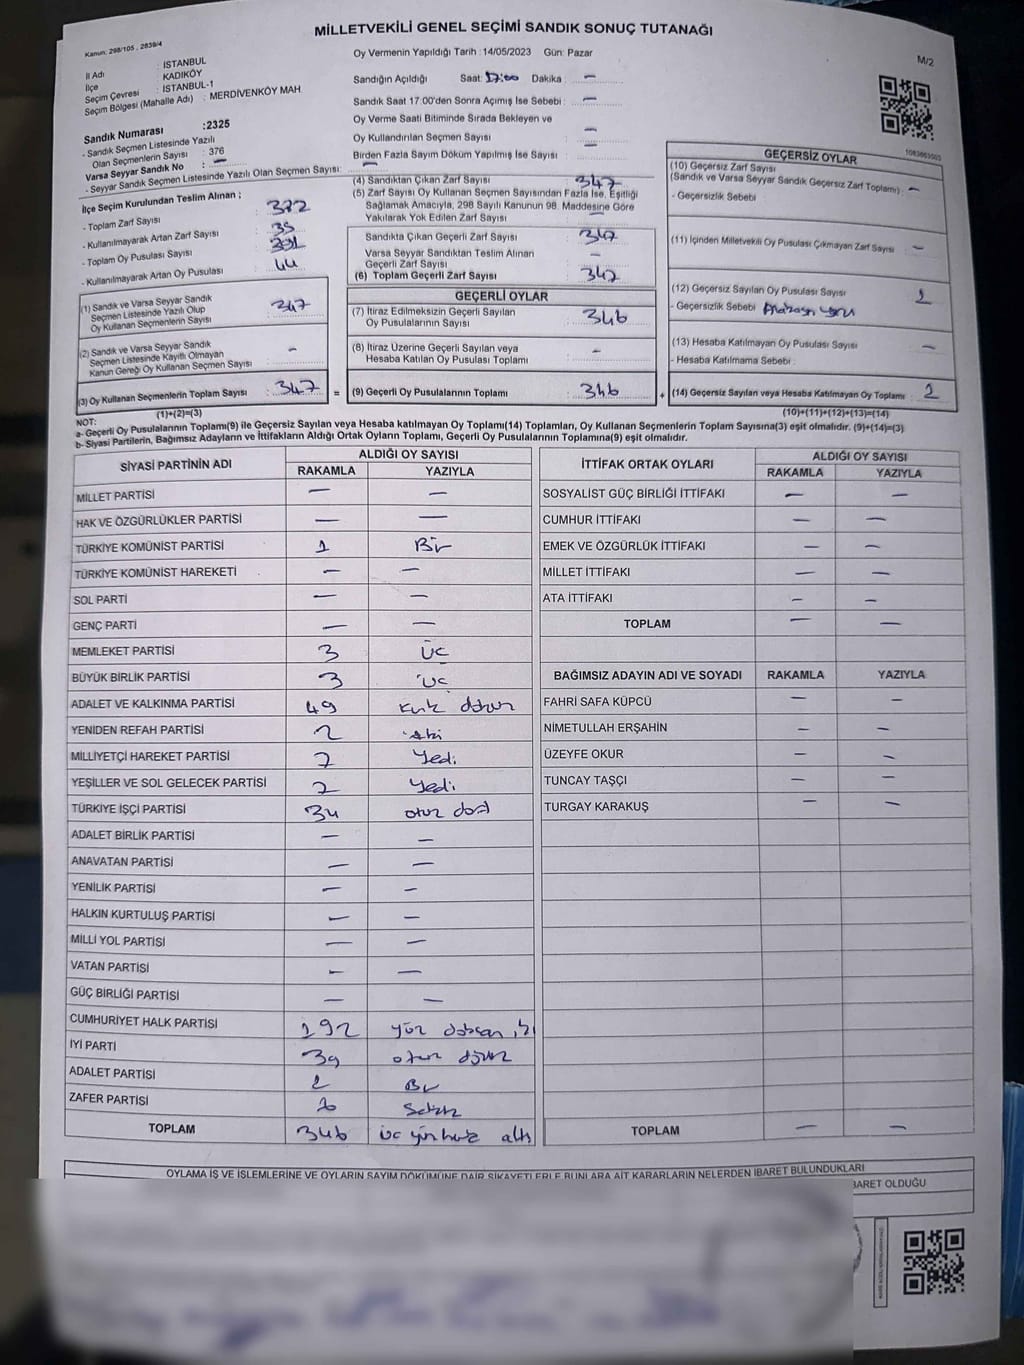 MİLLETVEKİLİ GENEL SEÇİMİ SANDIK SONUÇ TUTANAĞI
Kanun: 298/105 , 2839/4
M/2
İl Adı : İSTANBUL
İlçe : KADIKÖY
Seçim Çevresi : İSTANBUL-1
Seçim Bölgesi (Mahalle Adı) : MERDİVENKÖY MAH.
Sandık Numarası :2325
- Sandık Seçmen Listesinde Yazılı
Olan Seçmenlerin Sayısı : 376
Varsa Seyyar Sandık No : —
- Seyyar Sandık Listesinde Yazılı Olan Seçmen Sayısı: —
İlçe Seçim Kurulundan Teslim Alınan ;
- Toplam Zarf Sayısı : 382
- Kullanılmayarak Artan Zarf Sayısı : 35
- Toplam Oy Pusulası Sayısı : 391
- Kullanılmayarak Artan Oy Pusulası : 44
(1) Sandık ve Varsa Seyyar Sandık
Seçmen Listesinde Yazılı Olup
Oy Kullanan Seçmenlerin Sayısı : 347
(2) Sandık ve Varsa Seyyar Sandık
Seçmen Listesinde Kayıtlı Olmayan
Kanun Gereği Oy Kullanan Seçmen Sayısı : —
(3) Oy Kullanan Seçmenlerin Toplam Sayısı : 347 =
(1)+(2)=(3)
Oy Vermenin Yapıldığı Tarih : 14/05/2023 Gün: Pazar
Sandığın Açıldığı Saat: 17:00 Dakika : —
Sandık Saat 17:00'den Sonra Açılmış İse Sebebi : —
Oy Verme Saati Bitiminde Sırada Bekleyen ve
Oy Kullandırılan Seçmen Sayısı : —
Birden Fazla Sayım Döküm Yapılmış İse Sayısı : —
(4) Sandıktan Çıkan Zarf Sayısı : 347
(5) Zarf Sayısı Oy Kullanan Seçmen Sayısından Fazla İse, Eşitliği
Sağlamak Amacıyla, 298 Sayılı Kanunun 98. Maddesine Göre
Yakılarak Yok Edilen Zarf Sayısı : —
Sandıkta Çıkan Geçerli Zarf Sayısı : 347
Varsa Seyyar Sandıktan Teslim Alınan
Geçerli Zarf Sayısı : —
(6) Toplam Geçerli Zarf Sayısı : 347
GEÇERLİ OYLAR
(7) İtiraz Edilmeksizin Geçerli Sayılan
Oy Pusulalarının Sayısı : 346
(8) İtiraz Üzerine Geçerli Sayılan veya
Hesaba Katılan Oy Pusulası Toplamı : —
(9) Geçerli Oy Pusulalarının Toplamı : 346 +
1083661003
GEÇERSİZ OYLAR
(10) Geçersiz Zarf Sayısı
(Sandık ve Varsa Seyyar Sandık Geçersiz Zarf Toplamı) : —
- Geçersizlik Sebebi
(11) İçinden Milletvekili Oy Pusulası Çıkmayan Zarf Sayısı : —
(12) Geçersiz Sayılan Oy Pusulası Sayısı : 1
- Geçersizlik Sebebi :
(13) Hesaba Katılmayan Oy Pusulası Sayısı : —
- Hesaba Katılmama Sebebi :
(14) Geçersiz Sayılan veya Hesaba Katılmayan Oy Toplamı : 1
(10)+(11)+(12)+(13)=(14)
NOT:
a- Geçerli Oy Pusulalarının Toplamı(9) ile Geçersiz Sayılan veya Hesaba katılmayan Oy Toplamı(14) Toplamları, Oy Kullanan Seçmenlerin Toplam Sayısına(3) eşit olmalıdır. (9)+(14)=(3)
b- Siyasi Partilerin, Bağımsız Adayların ve İttifakların Aldığı Ortak Oyların Toplamı, Geçerli Oy Pusulalarının Toplamına(9) eşit olmalıdır.
SİYASİ PARTİNİN ADI ALDIĞI OY SAYISI
RAKAMLA YAZIYLA
MİLLET PARTİSİ — —
HAK VE ÖZGÜRLÜKLER PARTİSİ — —
TÜRKİYE KOMÜNİST PARTİSİ 1 Bir
TÜRKİYE KOMÜNİST HAREKETİ — —
SOL PARTİ — —
GENÇ PARTİ — —
MEMLEKET PARTİSİ 3 üç
BÜYÜK BİRLİK PARTİSİ 3 üç
ADALET VE KALKINMA PARTİSİ 49 kırk dokuz
YENİDEN REFAH PARTİSİ 2 iki
MİLLİYETÇİ HAREKET PARTİSİ 7 Yedi
YEŞİLLER VE SOL GELECEK PARTİSİ 7 Yedi
TÜRKİYE İŞÇİ PARTİSİ 34 otuz dört
ADALET BİRLİK PARTİSİ — —
ANAVATAN PARTİSİ — —
YENİLİK PARTİSİ — —
HALKIN KURTULUŞ PARTİSİ — —
MİLLİ YOL PARTİSİ — —
VATAN PARTİSİ — —
GÜÇ BİRLİĞİ PARTİSİ — —
CUMHURİYET HALK PARTİSİ 192 yüz doksan iki
İYİ PARTİ 39 otuz dokuz
ADALET PARTİSİ 1 Bir
ZAFER PARTİSİ 8 Sekiz
TOPLAM 346 üç yüz kırk altı
İTTİFAK ORTAK OYLARI ALDIĞI OY SAYISI
RAKAMLA YAZIYLA
SOSYALİST GÜÇ BİRLİĞİ İTTİFAKI — —
CUMHUR İTTİFAKI — —
EMEK VE ÖZGÜRLÜK İTTİFAKI — —
MİLLET İTTİFAKI — —
ATA İTTİFAKI — —
TOPLAM — —
BAĞIMSIZ ADAYIN ADI VE SOYADI RAKAMLA YAZIYLA
FAHRİ SAFA KÜPCÜ — —
NİMETULLAH ERŞAHİN — —
ÜZEYFE OKUR — —
TUNCAY TAŞÇI — —
TURGAY KARAKUŞ — —
TOPLAM — —
OYLAMA İŞ VE İŞLEMLERİNE VE OYLARIN SAYIM DÖKÜMÜNE DAİR ŞİKAYETLERLE BUNLARA AİT KARARLARIN NELERDEN İBARET BULUNDUKLARI
BARET OLDUĞU